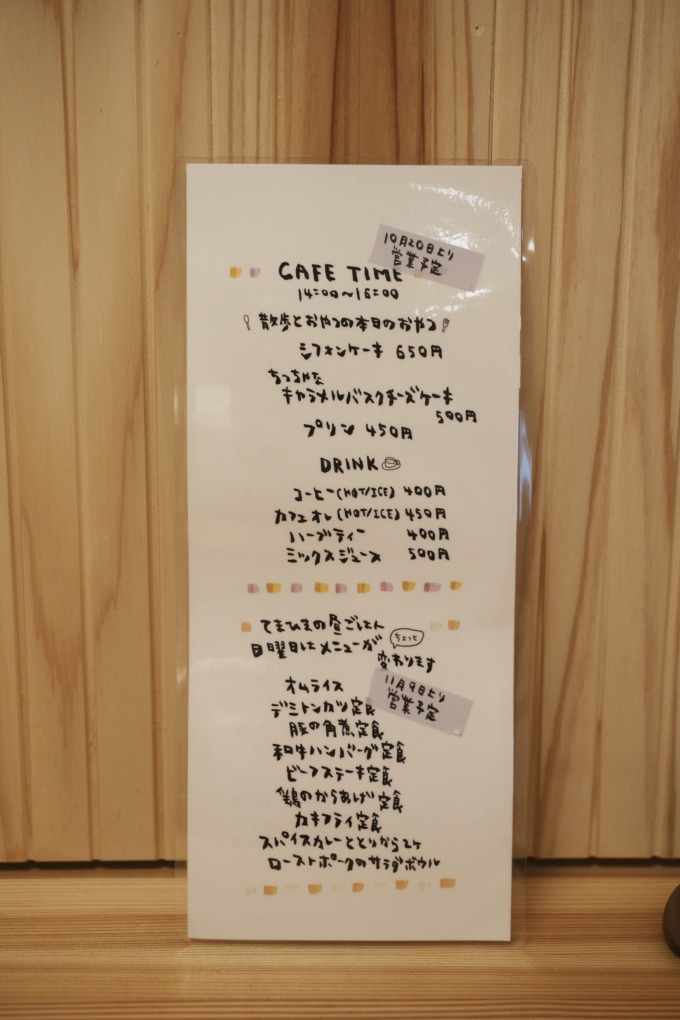 10月20日より
営業予定
CAFE TIME
14:00〜16:00
散歩とおやつの本日のおやつ
シフォンケーキ 650円
ちっちゃな
キャラメルバスクチーズケーキ
500円
プリン 450円
DRINK
コーヒー(HOT/ICE) 400円
カフェオレ(HOT/ICE) 450円
ハーブティー 400円
ミックスジュース 500円
てまひまの昼ごはん
日曜日はメニューが
ちょっと
変わります
11月9日より
営業予定
オムライス
デミトンカツ定食
豚の角煮定食
和牛ハンバーグ定食
ビーフステーキ定食
鶏のからあげ定食
カキフライ定食
スパイスカレーととりから2ケ
ローストポークのサラダボウル